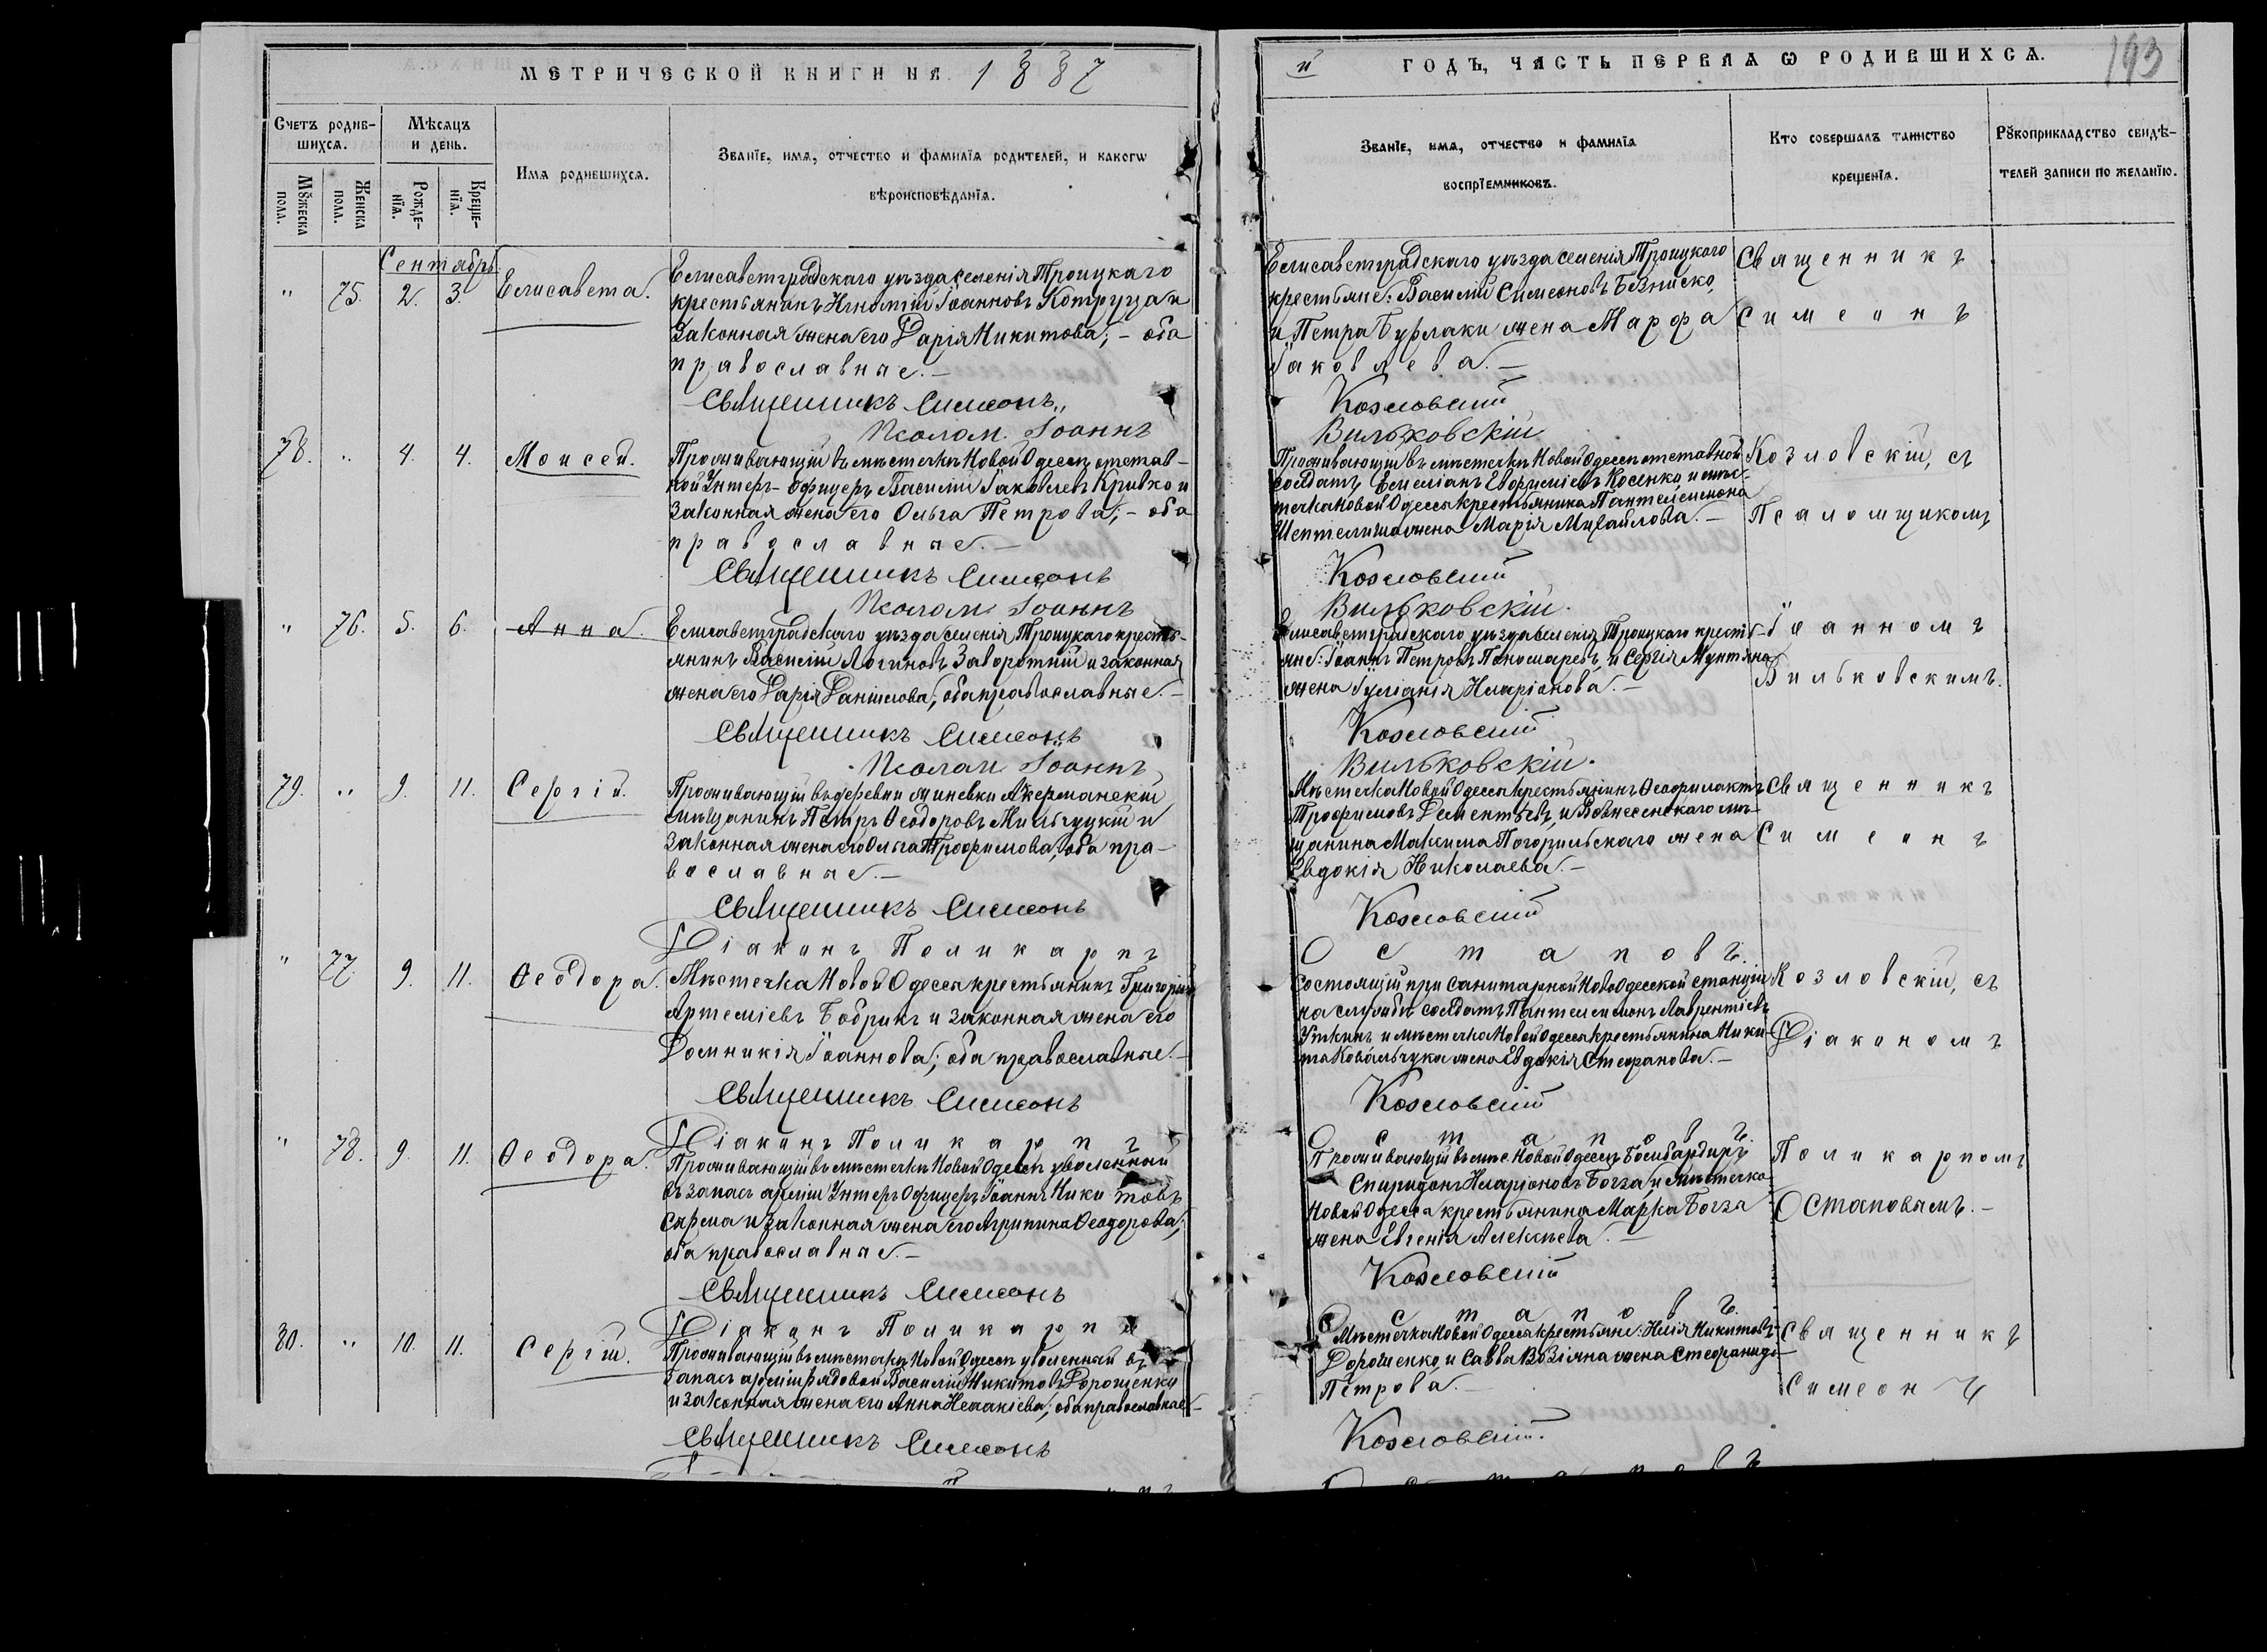 МЕТРИЧЕСКОЙ КНИГИ НА 1887
Счетъ родив-
шихсѧ.
Мѣсѧцъ
и день.
Мꙋжеска
пола.
Женска
пола.
Рожде-
нїѧ.
Креще-
нїѧ.
Имѧ родившихсѧ.
Званїе, имѧ, отчество и фамилїѧ родителей, и какогѡ
вѣроисповѣданїѧ.
Сентябрь
" 75. 2. 3. Елисавета.
Елисаветградскаго уѣзда селенія Троицкаго
крестьянинъ Игнатій Іоанновъ Котруца и
законная жена его Дарія Никитова, - оба
православные. -
Священникъ Симеонъ
Псалом. Іоаннъ
78. " 4. 4. Моисей.
Проживающій въ мѣстечкѣ Новой Одессѣ отстав-
ной Унтеръ-Офицеръ Василій Іаковлевъ Кривко и
законная жена его Ольга Петрова; - оба
православные. -
Священникъ Симеонъ
Псалом. Іоаннъ
" 76. 5. 6. Анна.
Елисаветградскаго уѣзда селенія Троицкаго кресть-
янинъ Василій Логиновъ Заворотній и законная
жена его Дарія Даніилова, оба православные. -
Священникъ Симеонъ
Псалом. Іоаннъ
79. " 9. 11. Сергій.
Проживающій въ деревни Акерманскій
мѣщанинъ Петръ Ѳеодоровъ и
законная жена его Ольга Трофимова, оба пра-
вославные. -
Священникъ Симеонъ
Діаконъ Поликарпъ
" 77. 9. 11. Ѳеодора.
Мѣстечка Новой Одессы крестьянинъ Григорій
Артеміевъ Бобрикъ и законная жена его
Домникія Іоаннова; оба православные. -
Священникъ Симеонъ
Діаконъ Поликарпъ
" 78. 9. 11. Ѳеодора.
Проживающій въ мѣстечкѣ Новой Одессѣ уволенный
въ запасъ арміи Унтеръ Офицеръ Іоаннъ Никитовъ
и законная жена его Агрипина Ѳеодорова,
оба православные. -
Священникъ Симеонъ
Діаконъ Поликарпъ
80. " 10. 11. Сергій.
Проживающій въ мѣстечкѣ Новой Одессѣ уволенный въ
запасъ арміи рядовой Василій Никитовъ Дорошенко
и законная жена его Анна Исаакіева; оба православные -
Священникъ Симеонъ
й ГОДЪ, ЧАСТЬ ПЕРВАѦ Ѡ РОДИВШИХСѦ. 193
Званїе, имѧ, отчество и фамилїѧ
воспрїемниковъ.
Кто совершалъ таинство
крещенїѧ.
Рꙋкоприкладство свидѣ-
телей записи по желанїю.
Елисаветградскаго уѣзда селенія Троицкаго
крестьяне: Василій Симеоновъ Безниско,
и Петра Бурлаки жена Марфа
Іаковлева. -
Козловскій
Вильковскій
Проживающій въ мѣстечкѣ Новой Одессѣ отставной
солдатъ Емеліанъ Евфиміевъ Косенко и мѣс-
течка Новой Одессы крестьянина Пантелеимона
жена Марія Михайлова. -
Козловскій
Вильковскій.
Елисаветградскаго уѣзда селенія Троицкаго кресть-
яне: Іоаннъ Петровъ Пономаревъ, и Сергія Мунтяна
жена Іуліанія Иларіонова. -
Козловскій
Вильковскій.
Мѣстечка Новой Одессы крестьянинъ Ѳеофилактъ
Трофимовъ Дементьевъ, и Вознесенскаго мѣ-
щанина Максима Погорильскаго жена
Евдокія Николаева. -
Козловскій
Остаповъ.
Состоящій при санитарной НовоОдесской станціи
на службѣ солдатъ Пантелеимонъ Лаврентіевъ
Уткинъ и мѣстечка Новой Одессы крестьянина Ники-
та Ковальчука жена Евдокія Стефанова. -
Козловскій
Остаповъ.
Проживающій въ мѣс. Новой Одессѣ Бомбардиръ
Спиридонъ Иларіоновъ Богза, и мѣстечка
Новой Одесса крестьянина Марка Богза
жена Евгенія Алексѣева. -
Козловскій
Остаповъ.
Мѣстечка Новой Одессы крестьяне: Илія Никитовъ
Дорошенко, и Савва Возіяна жена Стефанида
Петрова. -
Козловскій.
Остаповъ
Священникъ
Симеонъ
Козловскій, съ
Псаломщикомъ
Іоанномъ
Вильковскимъ.
Священникъ
Симеонъ
Козловскій, съ
Діакономъ
Поликарпомъ
Остаповымъ. -
Священникъ
Симеонъ